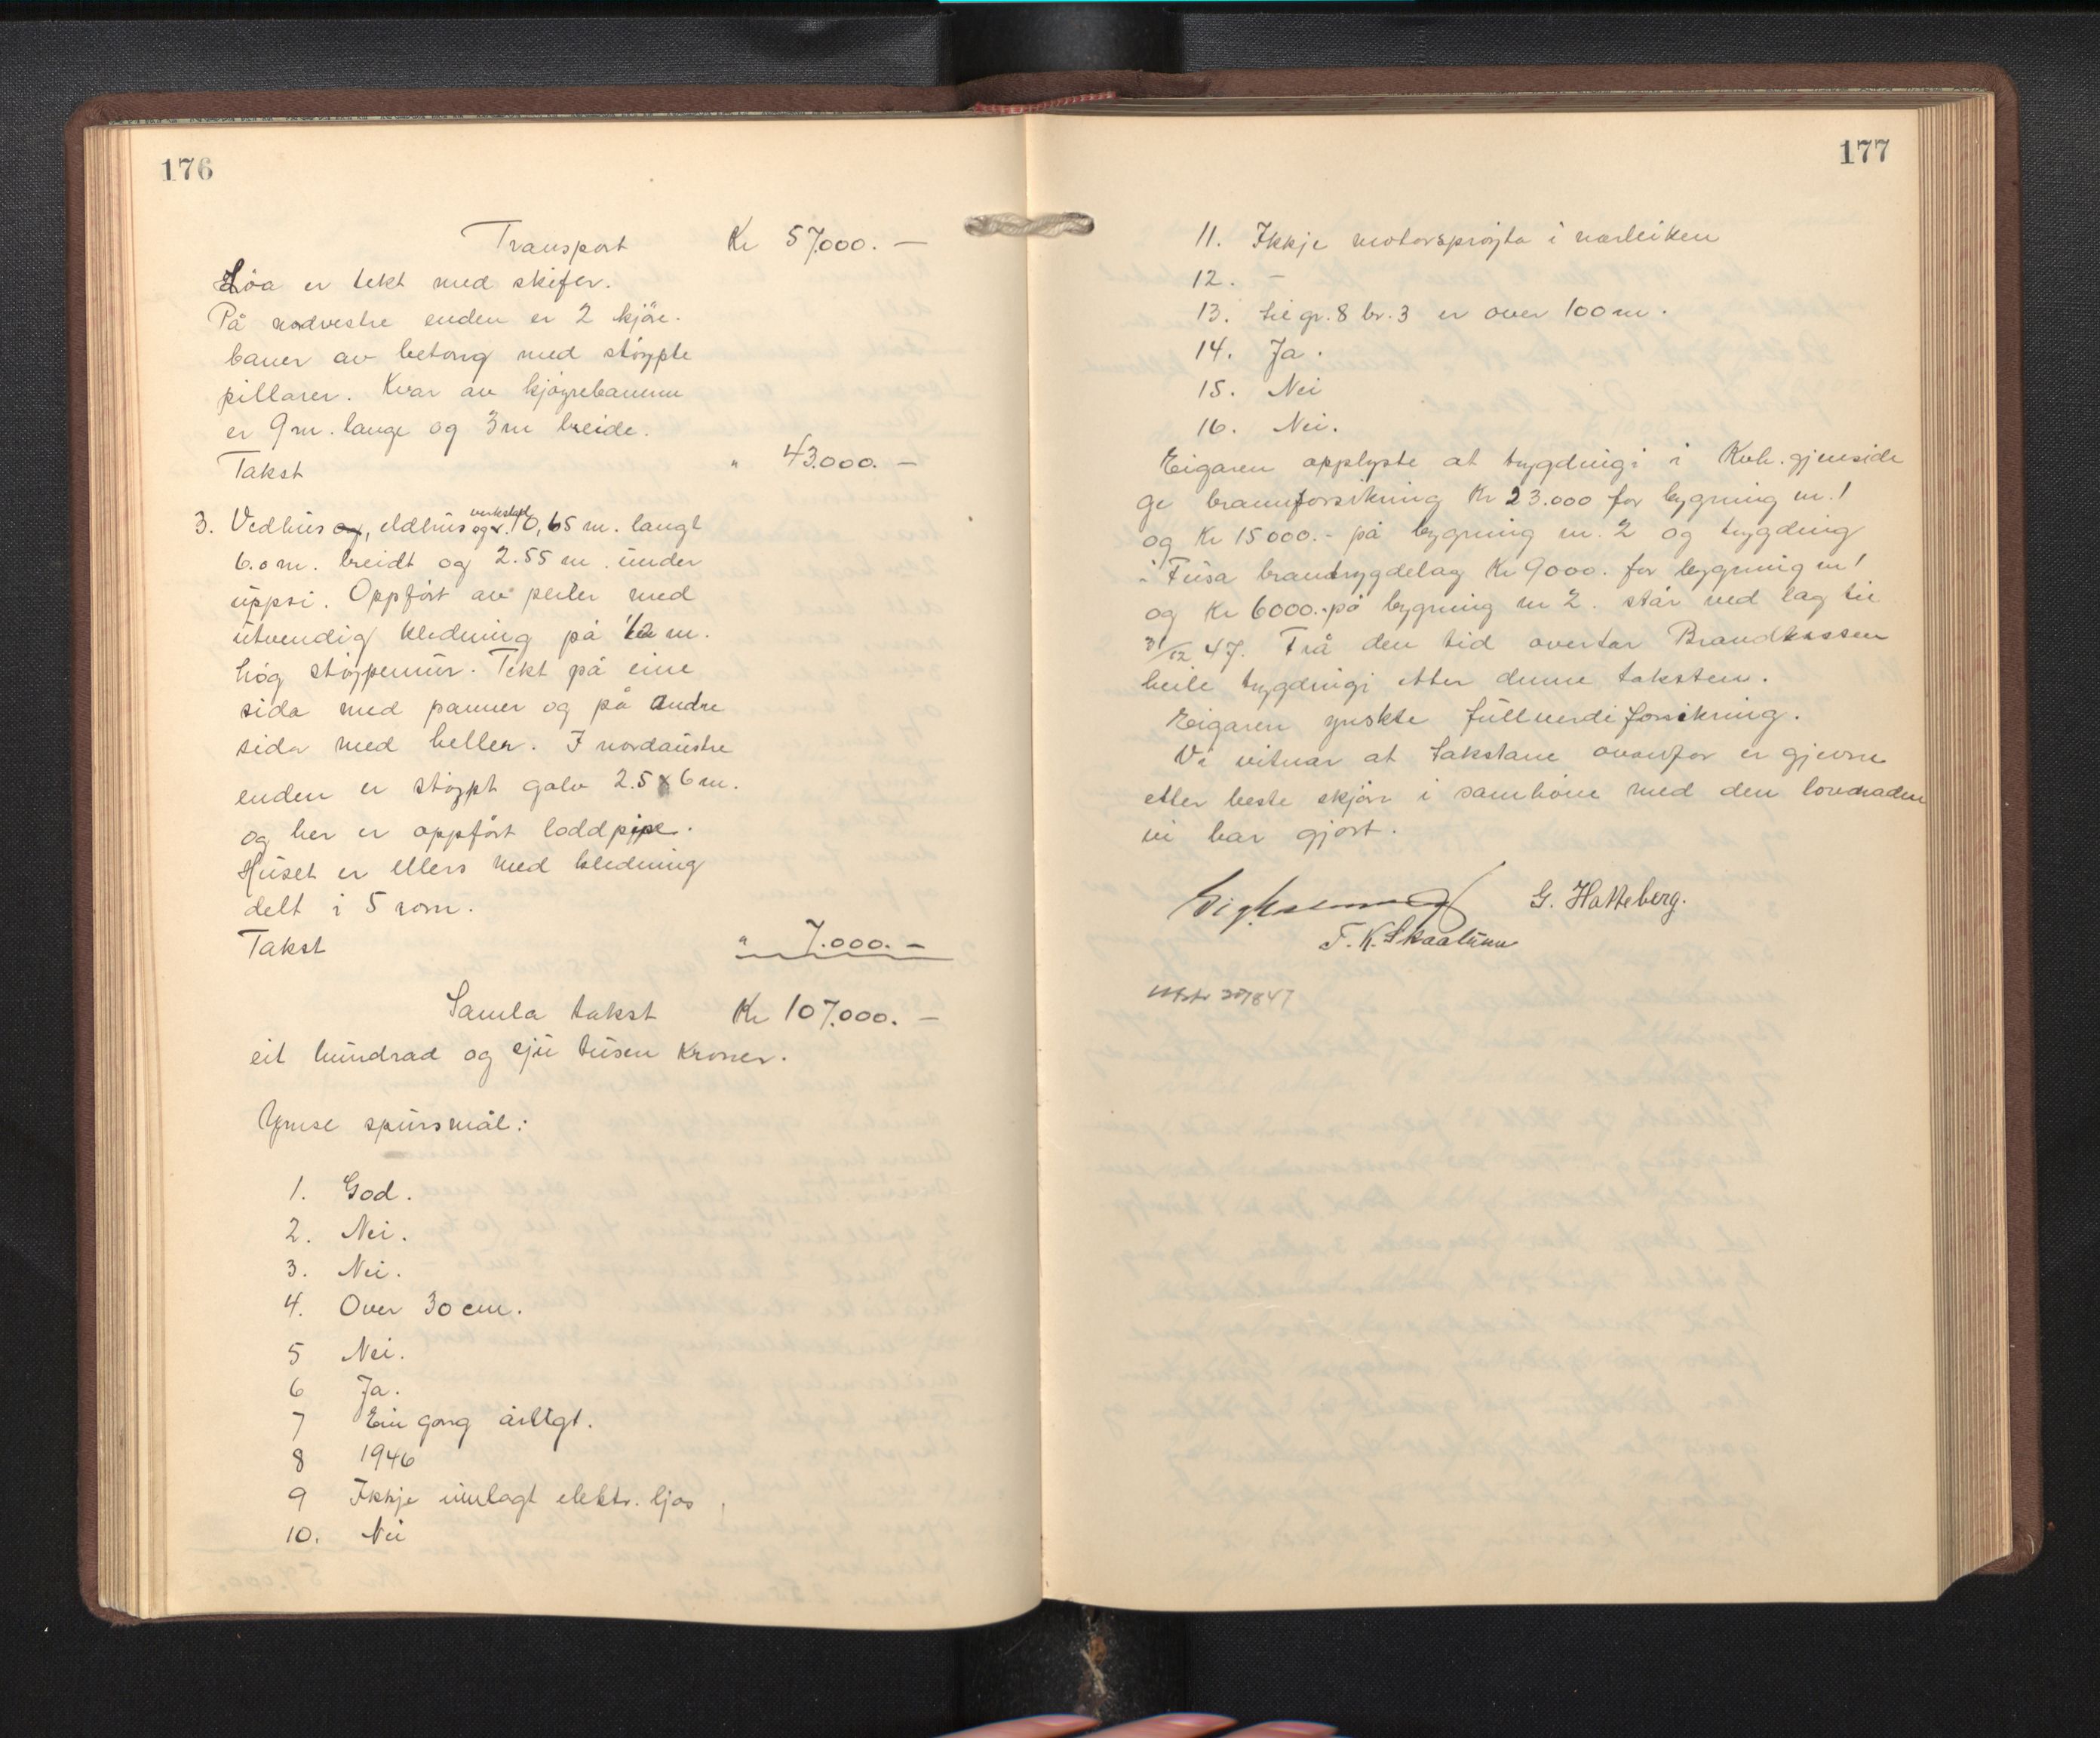 176
Transport Kr 57.000. —
Löa er tekt med skifer.
På nordvestre enden er 2 kjöre-
baner av betong med stöypte
pillarer. Kvar av kjöyrebanene
er 9 m. lange og 3 m breide.
Takst " 43.000. —
3. Vedhus og, eldhus og verkstad 10,65 m. langt
6.0 m. breidt og 2.55 m. under
uppsi. Oppfört av peiler med
utvendig kledning på 1/2 m.
hög stöypemur. Tekt på eine
sida med panner og på andre
sida med heller. I nordaustre
enden er stöypt golv 2.5 x 6 m.
og her er oppfört loddpipe.
Huset er ellers med kledning
delt i 5 rom.
Takst " 7.000. —
Samla takst Kr 107.000. —
eit hundrad og sju tusen Kroner.
Ymse spursmål:
1. God.
2. Nei.
3. Nei.
4. Over 30 cm.
5 Nei.
6 Ja.
7 Ein gong årligt.
8 1946
9 Ikkje innlagt elektr. ljos
10. Nei
177
11. Ikkje motorspröjta i nærleiken
12. –
13. til gr. 8 br. 3 er over 100 m.
14. Ja.
15. Nei
16. Nei.
Eigaren opplyste at trygdingi i Kvh. gjenside
ge brannforsikring Kr 23.000 for bygning nr. 1
og Kr 15000.- på bygning nr. 2 og trygding
i Fusa brandtrygdelag Kr 9000. for bygning nr 1
og Kr 6000.- på bygning nr 2. står ved lag til
31/12 47. Frå den tid overtar Brandkassen
heile trygdingi etter denne taksten.
Eigaren ynskte fullverdi forsikring.
Vi vitnar at takstane ovanfor er gjevne
etter beste skjön i samhöve med den lovnaden
vi har gjort.
G. Hatteberg.
T. K. Skaatun